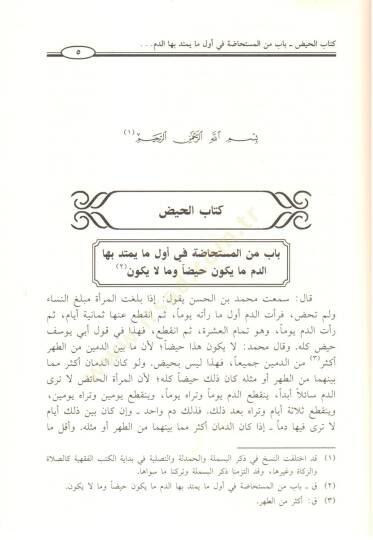 كتاب الحيض - باب من المستحاضة في أول ما يمتد بها الدم . . .
٥
بسم الله الرحمن الرحيم (١)
كتاب الحيض
باب من المستحاضة في أول ما يمتد بها
الدم ما يكون حيضاً وما لا يكون(٢)
قال: سمعت محمد بن الحسن يقول: إذا بلغت المرأة مبلغ النساء
ولم تحض، فرأت الدم أول ما رأته يوماً، ثم انقطع عنها ثمانية أيام، ثم
رأت الدم يوماً، وهو تمام العشرة، ثم انقطع، فهذا في قول أبي يوسف
حيض كله. وقال محمد: لا يكون هذا حيضاً؛ لأن ما بين الدمين من الطهر
أكثر(٣) من الدمين جميعاً، فهذا ليس بحيض. ولو كان الدمان أكثر مما
بينهما من الطهر أو مثله كان ذلك حيضاً كله؛ لأن المرأة الحائض لا ترى
الدم سائلاً أبداً، ينقطع الدم يوماً وتراه يوماً، وينقطع يومين وتراه يومين،
وينقطع ثلاثة أيام وتراه بعد ذلك. فذلك دم واحد - وإن كان بين ذلك أيام
لا ترى فيها دماً - إذا كان الدمان أكثر مما بينهما من الطهر أو مثله. وأقل ما
(١) قد اختلفت النسخ في ذكر البسملة والحمدلة والتصلية في بداية الكتب الفقهية كالصلاة
والزكاة وغيرها، وقد التزمنا ذكر البسملة وتركنا ما سواها.
(٢) ق ـ باب من المستحاضة في أول ما يمتد بها الدم ما يكون حيضاً وما لا يكون.
(٣) ق: أكثر من الطهر.